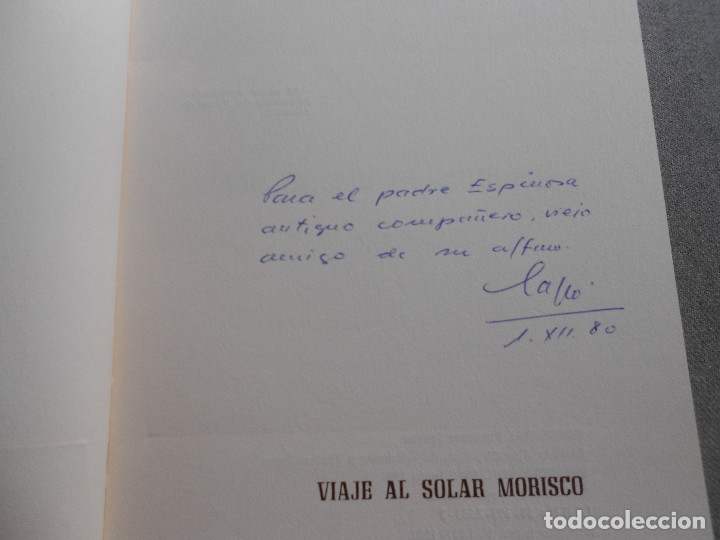 Para el padre Espinosa
antiguo compañero, viejo
amigo de su affmo.
1. XII. 80
VIAJE AL SOLAR MORISCO
todocoleccion